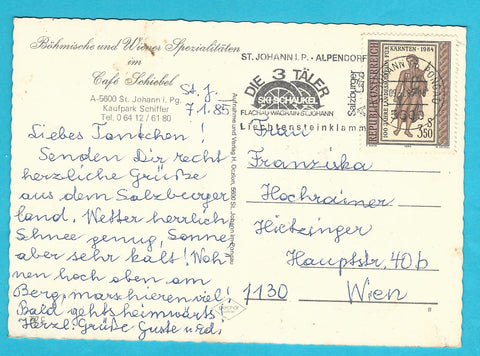 Böhmische und Wiener Spezialitäten
im
Café Schiebel
A-5600 St. Johann i. Pg.
Kaufpark Schiffer
Tel. 0 64 12 / 61 80
St. J.
7.1.85
Liebes Tantchen!
Senden Dir recht
herzliche Grüße
aus dem Salzburger
land. Wetter herrlich
Schnee genug, Sonne
aber sehr kalt! Woh-
nen hoch oben am
Berg, marschieren viel!
Bald gehts heimwärts
Herzl. Grüße Guste und
Aufnahme und Verlag H. Oczlon, 5600 St. Johann im Pongau
ST. JOHANN I. P. - ALPENDORF
DIE 3 TÄLER
SKI SCHAUKEL
FLACHAU-WAGRAIN-ST.JOHANN
Liechtensteinklamm
Salzburger
REPUBLIK ÖSTERREICH
KÄRNTEN 1984
S 3.50
Frau
Franziska
Hochrainer
Hietzinger
Hauptstr. 40b
1130 Wien